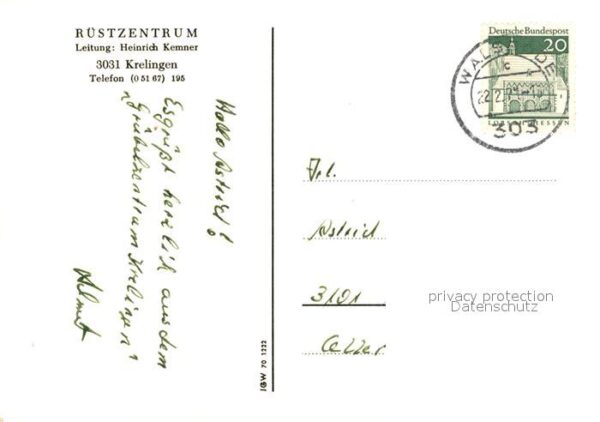 RÜSTZENTRUM
Leitung: Heinrich Kemner
3031 Krelingen
Telefon (0 51 67) 195
Hallo Astrid!
Es grüßt herzlich aus dem
Krelingen"
Helmut
JGW 70 1222
Deutsche Bundespost
20
WALSRODE
c
303
Frl.
Astrid
3101
Celle
privacy protection
Datenschutz